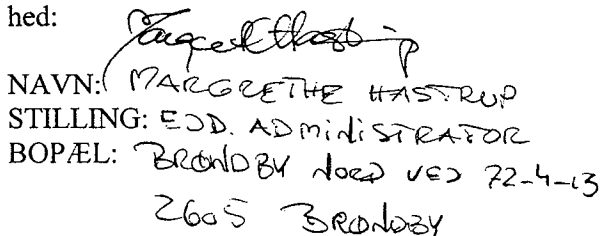 hed:
Margrethe Hastrup
NAVN: MARGRETHE HASTRUP
STILLING: EJD. ADMINISTRATOR
BOPÆL: BRØNDBY NORD VEJ 72-4-13
2605 BRØNDBY